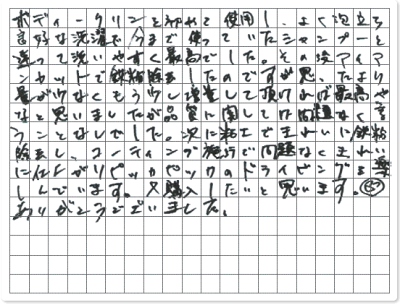 ボディークリンを初めて使用し、よく泡立ち
良好な洗濯で今まで使っていたシャンプーと
違って洗いやすく最高でした。その後アイア
ンカットで鉄粉除去したのですが思ったより
量が少なくもう少し増量して頂ければ最高かな
なと思いましたが品質に関しては問題なく言
うことなしでした。次に粘土できれいに鉄粉
除去し、コーティング施行で問題なくきれい
に仕上がりピッカピッカのドライビングを楽
しんでいます。又購入したいと思います。
ありがとうございました。